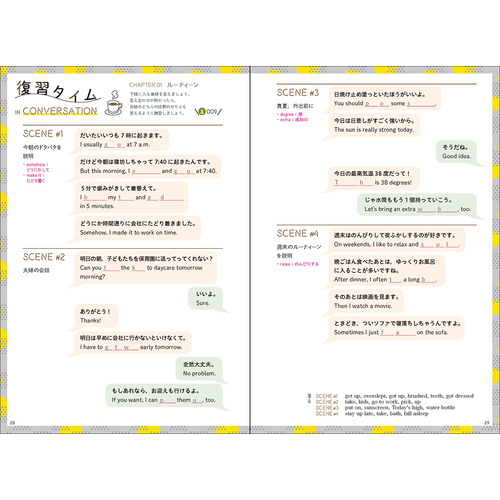 復習タイム
IN CONVERSATION
CHAPTER 01 ルーティーン
下線に入る単語を答えましょう。
答え合わせが終わったら、
会話のどちらの役割のせりふも
言えるように練習しましょう。
009
SCENE #1
今朝のドタバタを
説明
・somehow：
どうにかして
・make it：
たどり着く
だいたいいつも7時に起きます。
I usually g u at 7 a.m.
だけど今朝は寝坊しちゃって7:40に起きたんです。
But this morning, I o and g u at 7:40.
5分で歯みがきして着替えて。
I b my t and g d
in 5 minutes.
どうにか時間通りに会社にたどり着きました。
Somehow, I made it to work on time.
SCENE #2
夫婦の会話
明日の朝、子どもたちを保育園に送ってってくれない？
Can you t the k to daycare tomorrow
morning?
いいよ。
Sure.
ありがとう！
Thanks!
明日は早めに会社に行かないといけなくて。
I have to g t w early tomorrow.
全然大丈夫。
No problem.
もしあれなら、お迎えも行けるよ。
If you want, I can p them u, too.
28
SCENE #3
真夏、外出前に
・degree：度
・extra：追加の
日焼け止め塗っといたほうがいいよ。
You should p o some s.
今日は日差しがすごく強いから。
The sun is really strong today.
そうだね。
Good idea.
今日の最高気温38度だって！
T h is 38 degrees!
じゃ水筒ももう1個持っていこう。
Let's bring an extra w b, too.
SCENE #4
週末のルーティーン
を説明
・relax：のんびりする
週末はのんびりして夜ふかしするのが好きです。
On weekends, I like to relax and s u l.
晩ごはん食べたあとは、ゆっくりお風呂
に入ることが多いですね。
After dinner, I often t a long b.
そのあとは映画を見ます。
Then I watch a movie.
ときどき、ついソファで寝落ちしちゃうんですよ。
Sometimes I just f a on the sofa.
答え
SCENE #1 get up, overslept, got up, brushed, teeth, got dressed
SCENE #2 take, kids, go to work, pick, up
SCENE #3 put on, sunscreen, Today's high, water bottle
SCENE #4 stay up late, take, bath, fall asleep
29